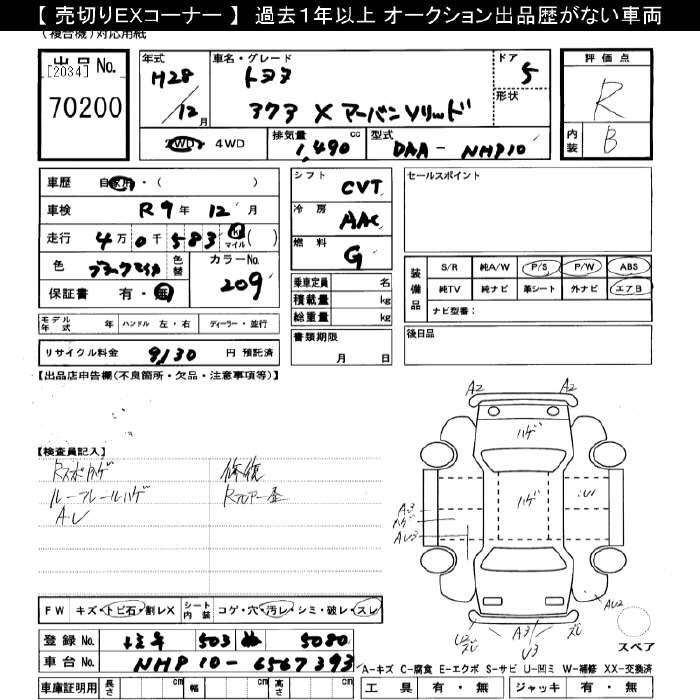 【 売切りEXコーナー 】 過去1年以上 オークション出品歴がない車両
(複合機)対応用紙
出品No.
[2034]
70200
年式
H28
／12月
車名・グレード
トヨタ
ドア
5
形状
2WD・4WD
排気量
1,490 cc
型式
DAA - NHP10
評価点
R
内装
B
車歴 自家用・( )
車検 R9年 12月
走行 4万0千583 km マイル ( )
色 色替 カラーNo.
209
保証書 有・無
モデル年式 年 ハンドル 左・右 ディーラー・並行
リサイクル料金 9,130 円 預託済
シフト CVT
冷房 AAC
燃料 G
乗車定員 名
積載量 kg
総重量 kg
書類期限
月 日
セールスポイント
装備品
S/R 純A/W P/S P/W ABS
純TV 純ナビ 革シート 外ナビ エアB
ナビ型番:
後日品
【出品店申告欄(不良箇所・欠品・注意事項等)】
【検査員記入】
ルーフレールハゲ
修復
AU
A2 A2
ハゲ
ハゲ
A3
ハゲ
AU3
AU2
A3
U3
FW キズ・トビ石・割レX
シート内装 コゲ・穴・汚レ・シミ・破レ・スレ
スペア
登録No. 503 5080
車台No. NHP10-6567393
A-キズ C-腐食 E-エクボ S-サビ U-凹ミ W-補修 XX-交換済
車庫証明用 長さ cm 幅 cm 高さ cm
工具 有・無 ジャッキ 有・無